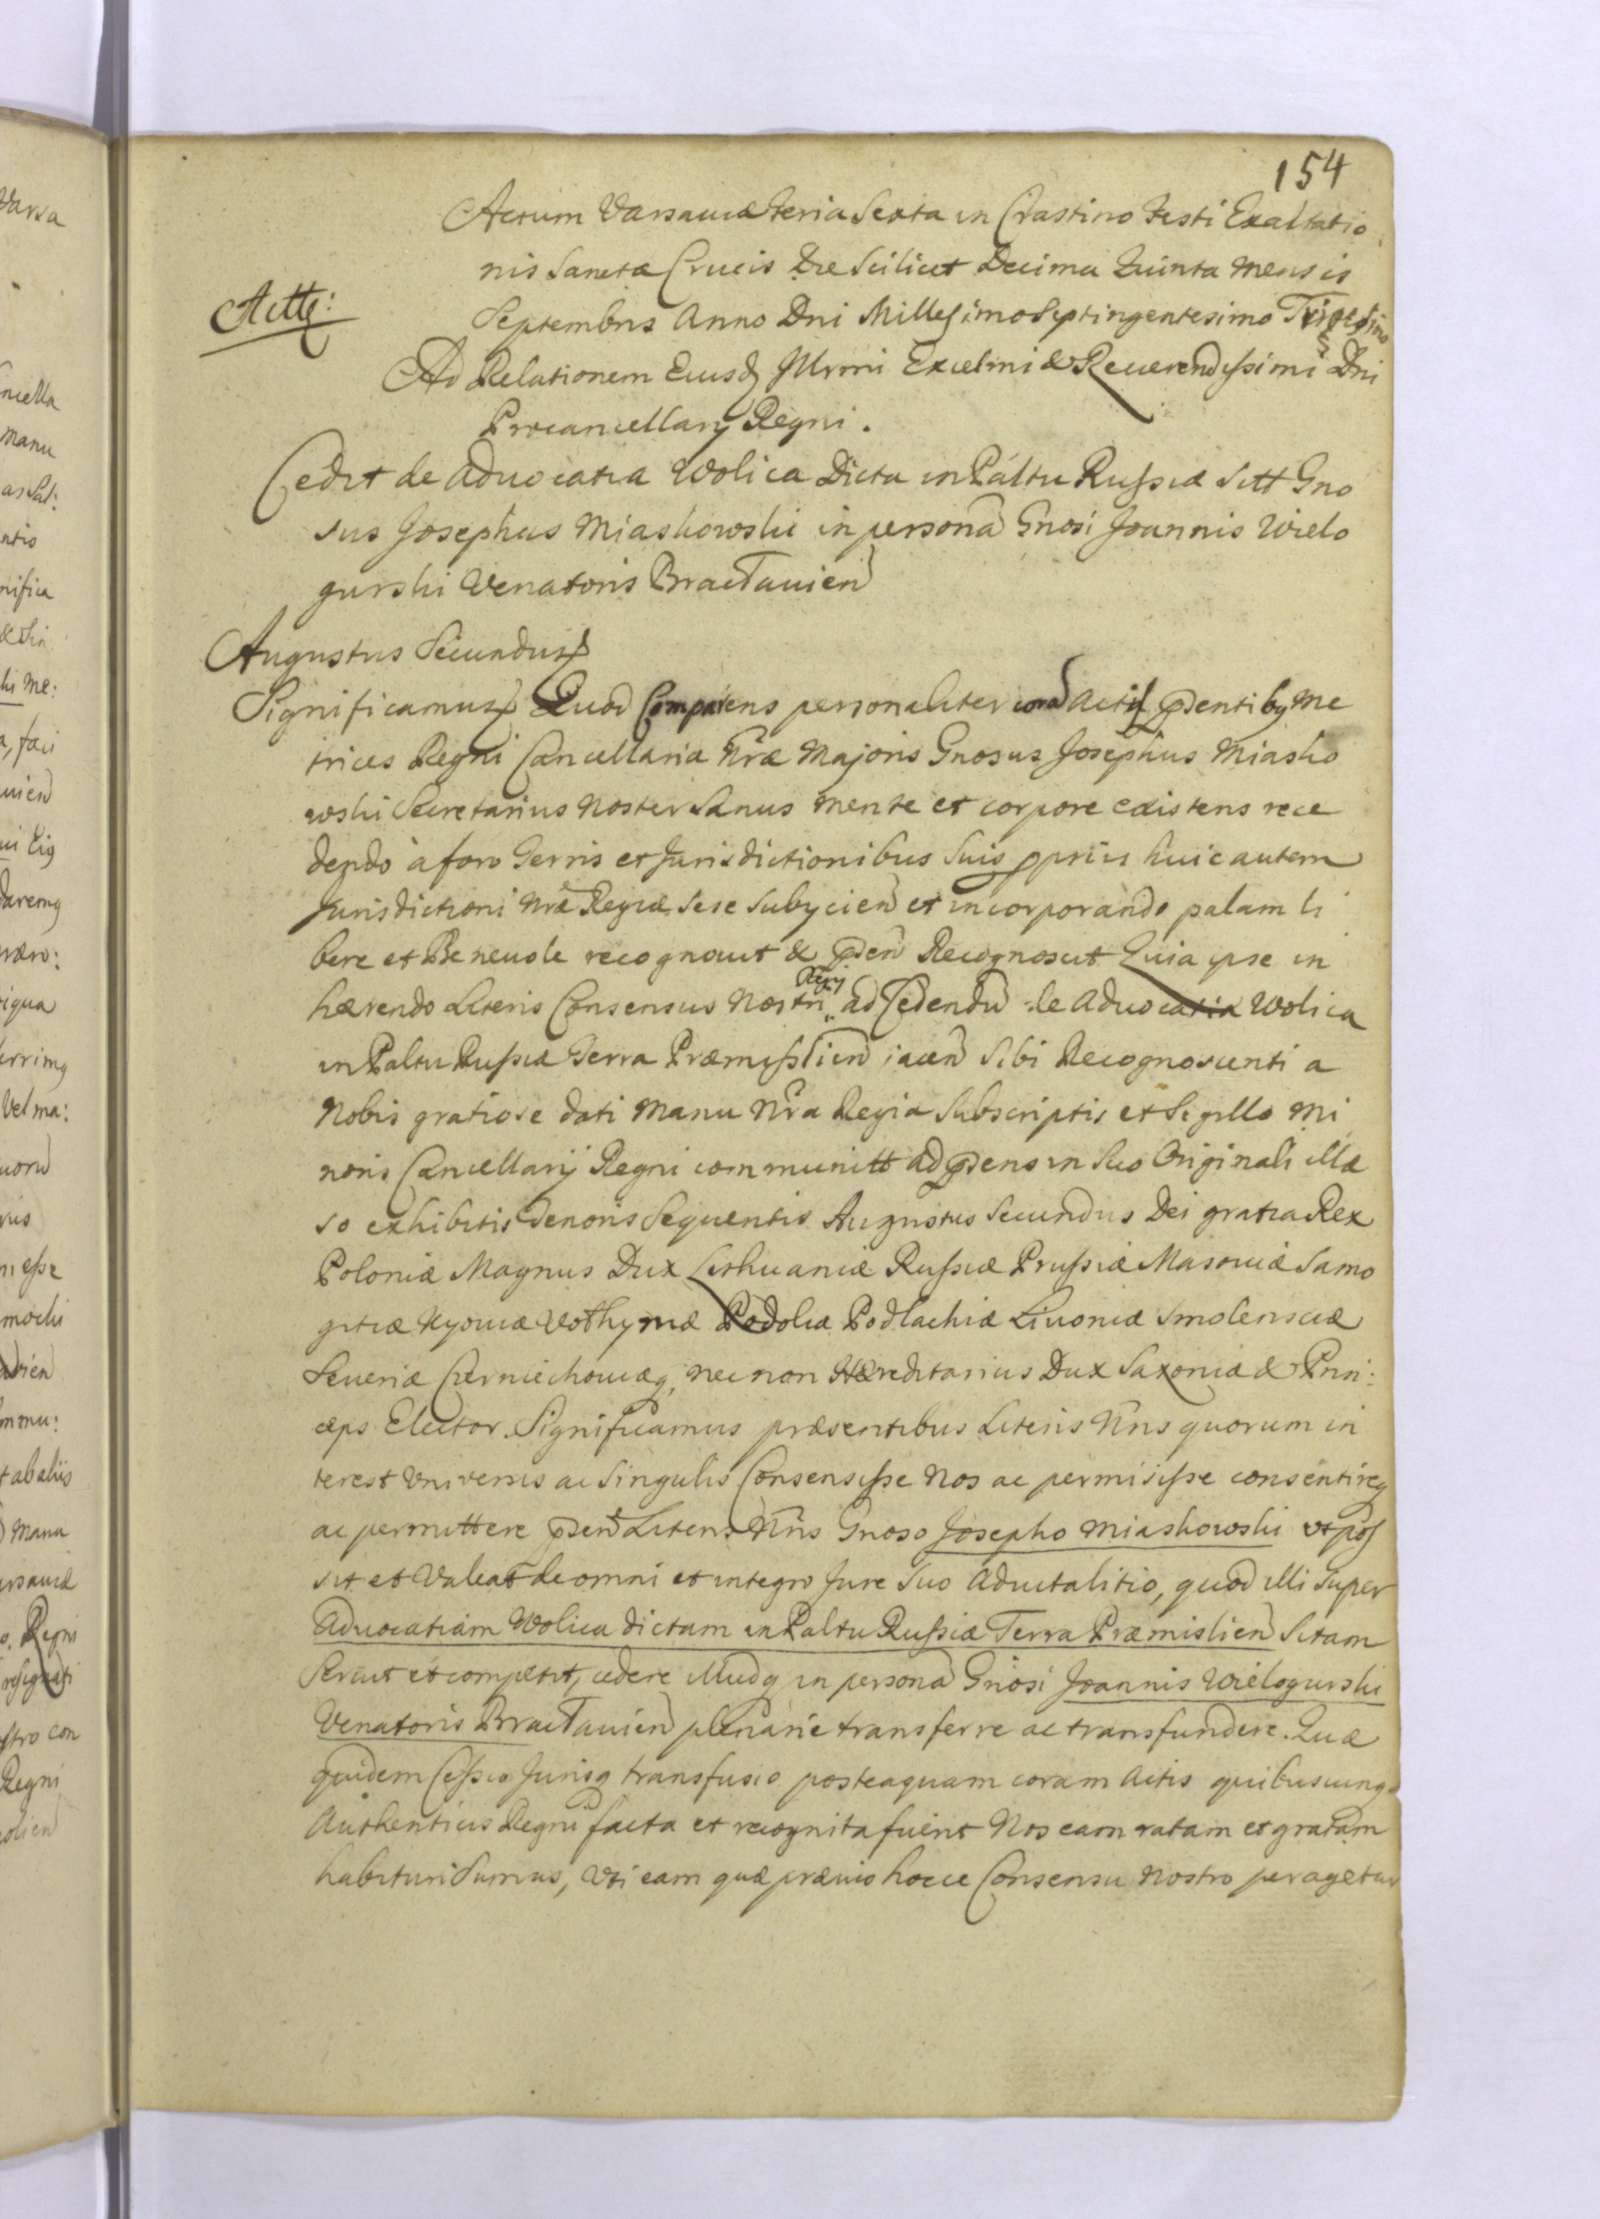 154
Actum Varsaviæ Feria Sexta in Crastino Festi Exaltatio
nis Sanctæ Crucis Die Scilicet Decima Quinta Mensis
Septembris Anno Dni Millesimo Septingentesimo Trigesimo
Actts:
Ad Relationem Eiusd Illrmi Excelmi & Reverendissimi Dni
Procancellarij Regni.
Cedit de Advocatia Wolica Dicta in Paltu Russiæ Sitt Gno
sus Josephus Miaskowski in persona Gnosi Joannis Wielo
gurski Venatoris Braclavien
Augustus Secundus
Significamus Quod Comparens personaliter coram Actis psentibus Me
trices Regni Cancellariæ Nræ Majoris Gnosus Josephus Miasko
wski Secretarius Noster Sanus mente et corpore existens rece
dendo à foro Terris et Jurisdictionibus Suis pprijs huic autem
Jurisdictioni Nræ Regiæ sese Subycien et incorporando palam li
bere et Benevole recognovit & psen Recognoscit Quia ipse in
hærendo Literis Consensus Nostri Regij ad Cedendu de Advocatia Wolica
in Paltu Russiæ Terra Præmislien jacen Sibi Recognoscenti a
Nobis gratiose dati Manu Nra Regia Subscriptis et Sigillo Mi
noris Cancellarij Regni communitt ad psens in Suo Originali illæ
so exhibitis Tenoris Sequentis Augustus Secundus Dei gratia Rex
Poloniæ Magnus Dux Lithuaniæ Russiæ Prussiæ Masoviæ Samo
gitiæ Kyoviæ Volhyniæ Podoliæ Podlachiæ Livoniæ Smolensciæ
Severiæ Czerniechoviæq, nec non Hæreditarius Dux Saxoniæ & Prin:
ceps Elector. Significamus præsentibus Literis Nris quorum in
terest Universis ac Singulis Consensisse Nos ac permisisse consentireq
ac permittere psen Literis Nris Gnoso Josepho Miaskowski ut pos
sit et Valeat de omni et integro Jure Suo Advitalitio, quod illi Super
Advocatiam Wolica dictam in Paltu Russiæ Terra Præmislien Sitam
Servit et competit, cedere illudq in persona Gnosi Joannis Wielogurski
Venatoris Braclavien plenarie transferre ac transfundere. Quæ
quidem Cessio Jurisq transfusio posteaquam coram Actis quibuscunq
Authenticis Regni facta et recognita fuerit Nos eam ratam et gratam
habituri Sumus, Uti eam quæ prævio hocce Consensu Nostro peragetur